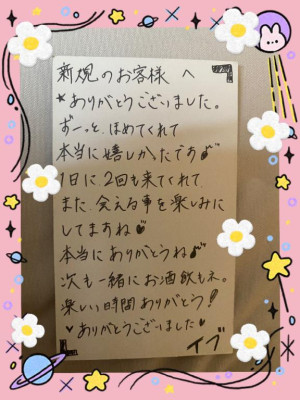 新規のお客様へ
★ありがとうございました。
ずーっと、ほめてくれて
本当に嬉しかったです
1日に、2回も来てくれて
また、会える事を楽しみに
してますね♡
本当にありがとうね
次も一緒にお酒飲もネ。
楽しい時間ありがとう!
♥ありがとうございました♥
イブ